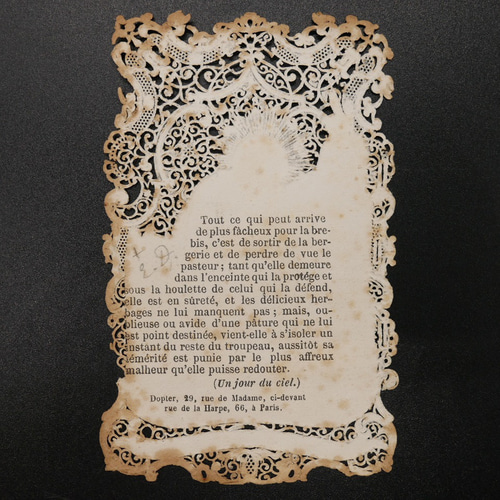 Tout ce qui peut arrive
de plus fâcheux pour la bre-
bis, c'est de sortir de la ber-
gerie et de perdre de vue le
pasteur; tant qu'elle demeure
dans l'enceinte qui la protége et
sous la houlette de celui qui la défend,
elle est en sûreté, et les délicieux her-
bages ne lui manquent pas; mais, ou-
blieuse ou avide d'une pâture qui ne lui
est point destinée, vient-elle à s'isoler un
instant du reste du troupeau, aussitôt sa
témérité est punie par le plus affreux
malheur qu'elle puisse redouter.
(Un jour du ciel.)
Dopter, 29, rue de Madame, ci-devant
rue de la Harpe, 66, à Paris.